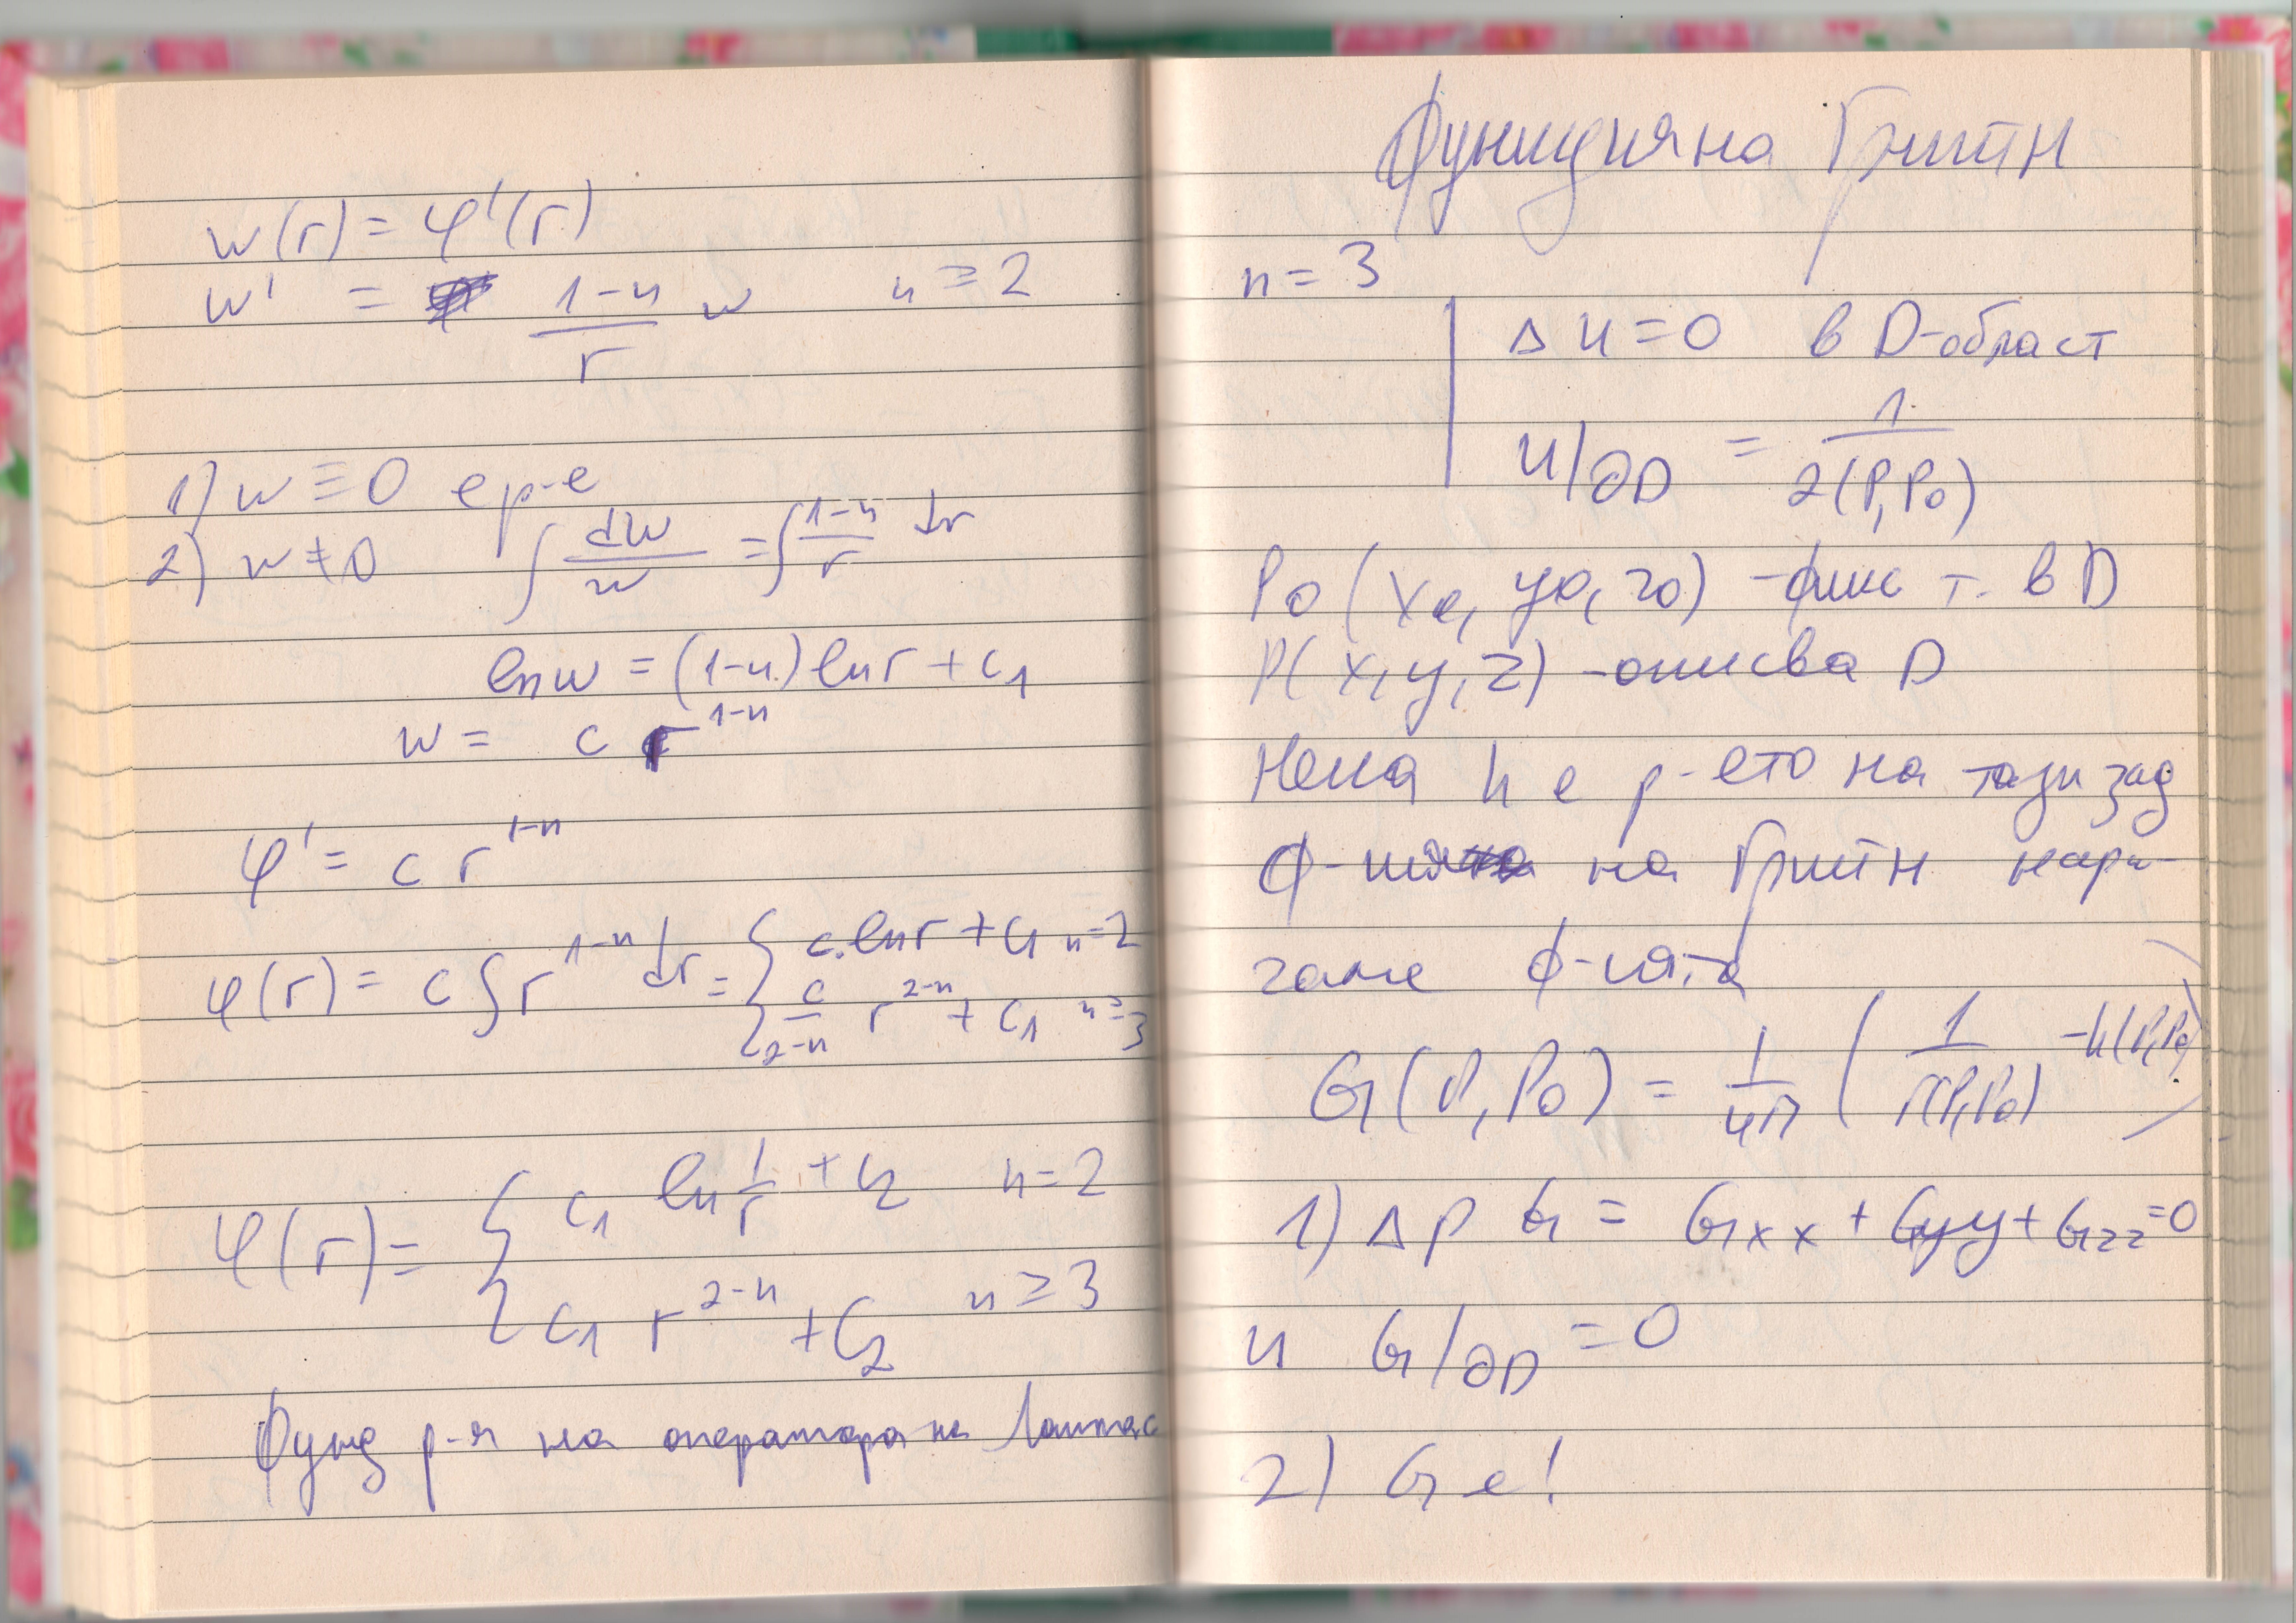 w(r) = φ'(r)
w' = (1-n)/r w n ≥ 2
1) w ≡ 0 е р-е
2) w ≠ 0 ∫ dw/w = ∫ (1-n)/r dr
ln w = (1-n) ln r + c₁
w = c r^(1-n)
φ' = c r^(1-n)
φ(r) = c ∫ r^(1-n) dr = { c.ln r + c₁ n=2
c/(2-n) r^(2-n) + c₁ n ≥ 3
φ(r) = { c₁ ln 1/r + c₂ n=2
c₁ r^(2-n) + c₂ n ≥ 3
Фунд р-я на оператора на Лаплас
Функция на Грийн
n = 3
Δu = 0 в D-област
u/∂D = 1/r(P,P₀)
P₀(x₀, y₀, z₀) - фикс т. в D
P(x, y, z) - описва D
Нека h е р-ето на тази зад
ф-ция на Грийн нари-
чаме ф-цята
G(P,P₀) = 1/4π (1/r(P,P₀) - h(P,P₀))
1) Δp G = Gxx + Gyy + Gzz = 0
и G/∂D = 0
2) G е!